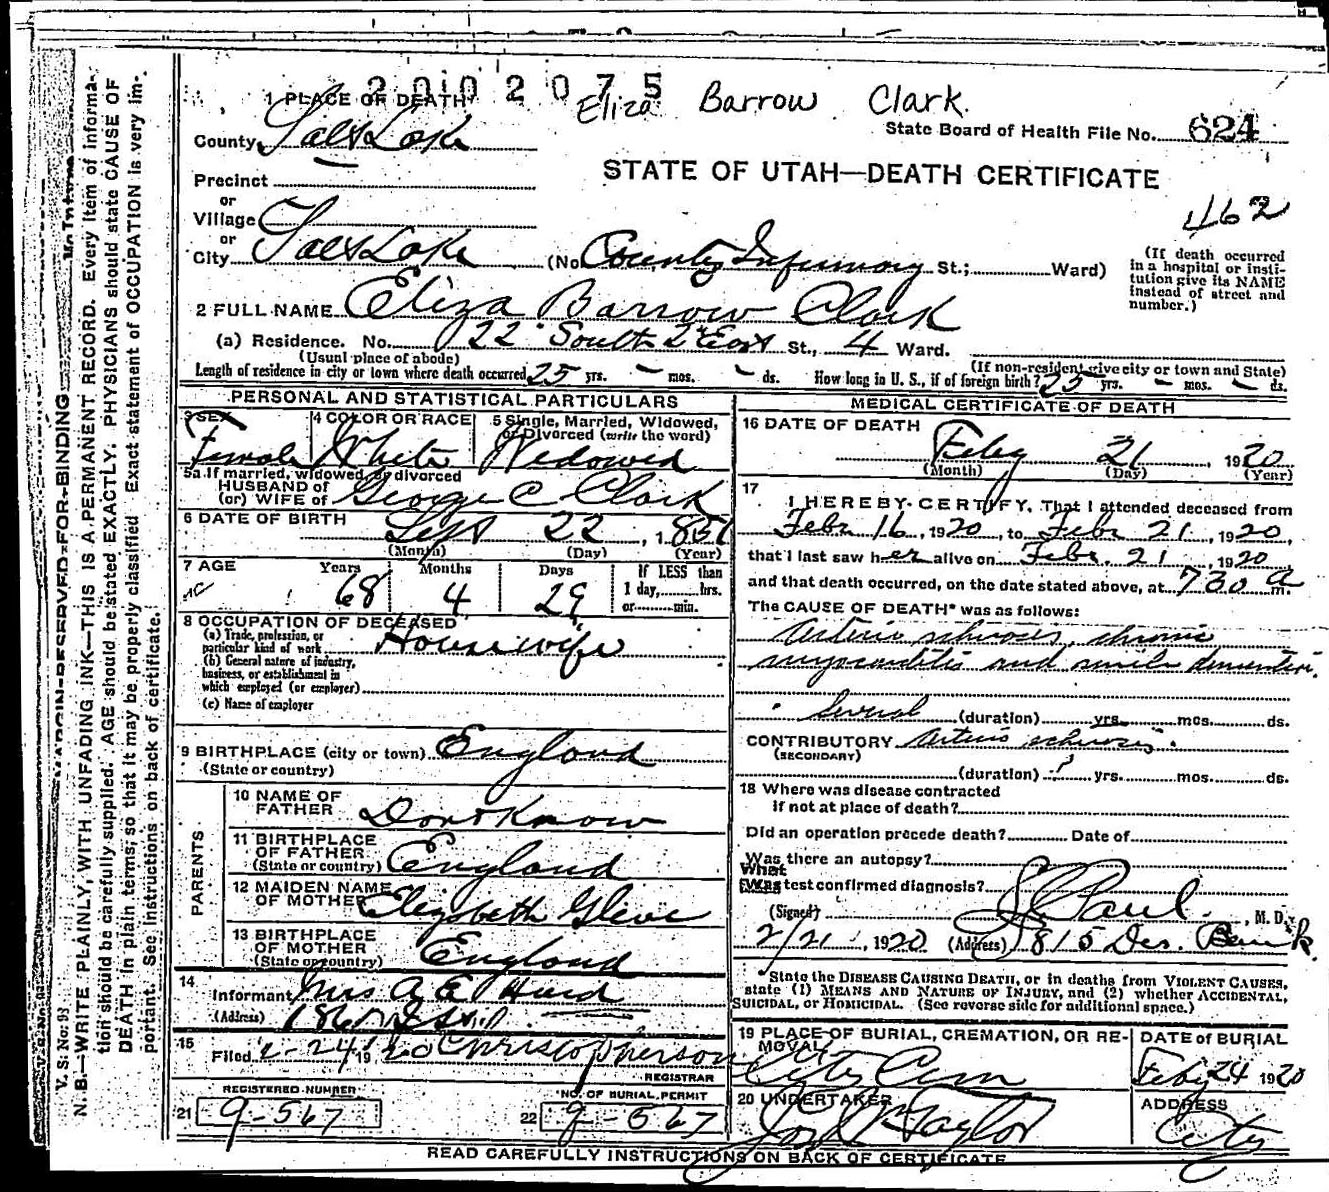 2002075
Eliza Barrow Clark.
1 PLACE OF DEATH
State Board of Health File No. 624
County, Salt Lake
STATE OF UTAH—DEATH CERTIFICATE
Precinct
or
462
Village
or
City Salt Lake (No. County Infirmary St.; Ward)
(If death occurred in a hospital or insti-
tution give its NAME
instead of street and
number.)
2 FULL NAME Eliza Barrow Clark
(a) Residence. No. 22 South 2d East St., 4 Ward.
(Usual place of abode) (If non-resident give city or town and State)
Length of residence in city or town where death occurred 25 yrs. – mos. – ds. How long in U. S., if of foreign birth? 25 yrs. – mos. – ds.
PERSONAL AND STATISTICAL PARTICULARS
3 SEX Female
4 COLOR OR RACE White
5 Single, Married, Widowed,
or Divorced (write the word)
Widowed
5a If married, widowed, or divorced
HUSBAND OF
(or) WIFE of George C Clark
6 DATE OF BIRTH Sept 22, 1851
(Month) (Day) (Year)
7 AGE Years Months Days If LESS than
68 4 29 1 day, hrs.
or min.
8 OCCUPATION OF DECEASED
(a) Trade, profession, or
particular kind of work Housewife
(b) General nature of industry,
business, or establishment in
which employed (or employer)
(c) Name of employer
9 BIRTHPLACE (city or town) England
(State or country)
PARENTS
10 NAME OF
FATHER Dont Know
11 BIRTHPLACE
OF FATHER
(State or country) England
12 MAIDEN NAME
OF MOTHER Elizabeth
13 BIRTHPLACE
OF MOTHER
(State or country) England
14
Informant Mrs A E Hurd
(Address)
15
Filed 2-24 1920 Christopherson
REGISTRAR
REGISTERED NUMBER
21 9-567
NO. OF BURIAL PERMIT
22 9-567
MEDICAL CERTIFICATE OF DEATH
16 DATE OF DEATH
Feby 21, 1920
(Month) (Day) (Year)
17
I HEREBY CERTIFY, That I attended deceased from
Febr 16, 1920, to Febr 21, 1920,
that I last saw her alive on Febr. 21, 1920
and that death occurred, on the date stated above, at 730 a m.
The CAUSE OF DEATH* was as follows:
Arterio schrosis, chronic
myocarditis and senile dementia.
Several (duration) yrs. mos. ds.
CONTRIBUTORY Arterio schrosis.
(SECONDARY)
(duration) ? yrs. mos. ds.
18 Where was disease contracted
if not at place of death?
Did an operation precede death? Date of
Was there an autopsy?
What
test confirmed diagnosis?
(Signed) Paul, M. D.
2/21, 1920 (Address) 815 Des. Bank.
State the DISEASE CAUSING DEATH, or in deaths from VIOLENT CAUSES,
state (1) MEANS AND NATURE OF INJURY, and (2) whether ACCIDENTAL,
SUICIDAL, or HOMICIDAL. (See reverse side for additional space.)
19 PLACE OF BURIAL, CREMATION, OR RE-
MOVAL
City Cem
DATE of BURIAL
Feby 24 1920
20 UNDERTAKER
Taylor
ADDRESS
City
READ CAREFULLY INSTRUCTIONS ON BACK OF CERTIFICATE
V. S. No. 93
MARGIN RESERVED FOR BINDING
N. B.—WRITE PLAINLY, WITH UNFADING INK—THIS IS A PERMANENT RECORD. Every item of informa-
tion should be carefully supplied. AGE should be stated EXACTLY. PHYSICIANS should state CAUSE OF
DEATH in plain terms, so that it may be properly classified. Exact statement of OCCUPATION is very im-
portant. See instructions on back of certificate.